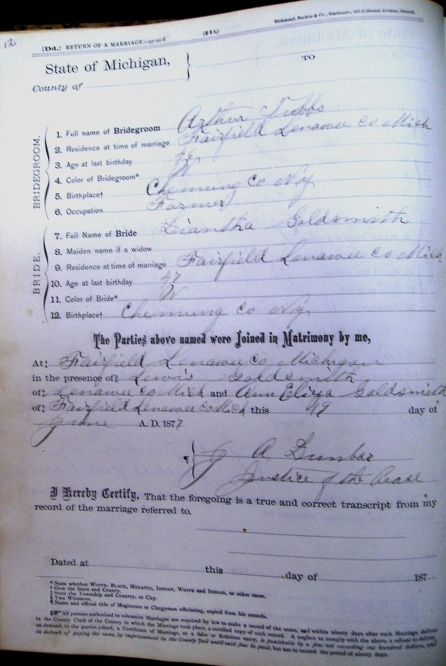 [D54.] RETURN OF A MARRIAGE.
(218)
State of Michigan, } TO
County of
BRIDEGROOM.
1. Full name of Bridegroom Arthur Tubbs
2. Residence at time of marriage Fairfield Lenawee Co Mich
3. Age at last birthday
4. Color of Bridegroom* W
5. Birthplace† Chemung Co Ny
6. Occupation Farmer
BRIDE.
7. Full Name of Bride Diantha Goldsmith
8. Maiden name if a widow
9. Residence at time of marriage Fairfield Lenawee Co Mich
10. Age at last birthday 47
11. Color of Bride* W
12. Birthplace† Chemung Co Ny
The Parties above named were Joined in Matrimony by me,
At‡ Fairfield Lenawee Co Michigan
in the presence of§ Lewis Goldsmith
of‡ Lenawee Co Mich and Ann Eliza Goldsmith
of‡ Fairfield Lenawee Co Mich this 19 day of
June A. D. 1877
J A Dunbar
Justice of the Peace
I Hereby Certify, That the foregoing is a true and correct transcript from my
record of the marriage referred to.
Dated at this day of 187
* State whether WHITE, BLACK, MULATTO, INDIAN, WHITE AND INDIAN, or other races.
† Give the State and County.
‡ State the Township and County, or City.
§ Two Witnesses.
¶ Name and official title of Magistrate or Clergyman officiating, copied from his records.